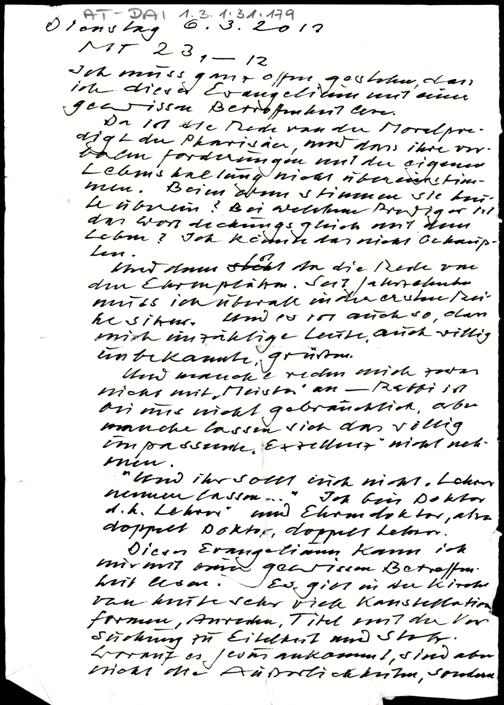 AT-DAI 1.3.1.31.179
Dienstag 6.3.2012
MT 23,1-12
Ich muss ganz offen gestehen, dass
ich dieses Evangelium mit einer
gewissen Betroffenheit lese.
Da ist die Rede von der Moralpre-
digt der Pharisäer, und dass ihre ver-
balen Forderungen mit der eigenen
Lebenshaltung nicht übereinstim-
men. Beim stimmen sie heu-
te überein? Bei welchem Prediger ist
das Wort deckungsgleich mit dem
Leben? Ich könnte das nicht behaup-
ten.
Und dann ist da die Rede von
den Ehrenplätzen. Seit Jahrzehnten
muss ich überall in der ersten Rei-
he sitzen. Und es ist auch so, dass
mich unzählige Leute, auch völlig
unbekannte, grüßen.
Und manche reden mich zwar
nicht mit "Meister" an – Rabbi ist
bei uns nicht gebräuchlich, aber
manche lassen sich das völlig
unpassende "Exzellenz" nicht neh-
men.
"Und ihr sollt euch nicht "Lehrer
nennen lassen..." Ich bin Doktor
d.h. "Lehrer" und Ehrendoktor, also
doppelt Doktor, doppelt Lehrer.
Dieses Evangelium kann ich
nur mit einer gewissen Betroffen-
heit lesen. Es gibt in der Kirche
von heute sehr viele Konstellationen
formen, Anreden, Titel mit der Ver-
suchung zu Eitelkeit und Stolz.
Worauf es Jesus ankommt, sind aber
nicht die Äußerlichkeiten, sondern